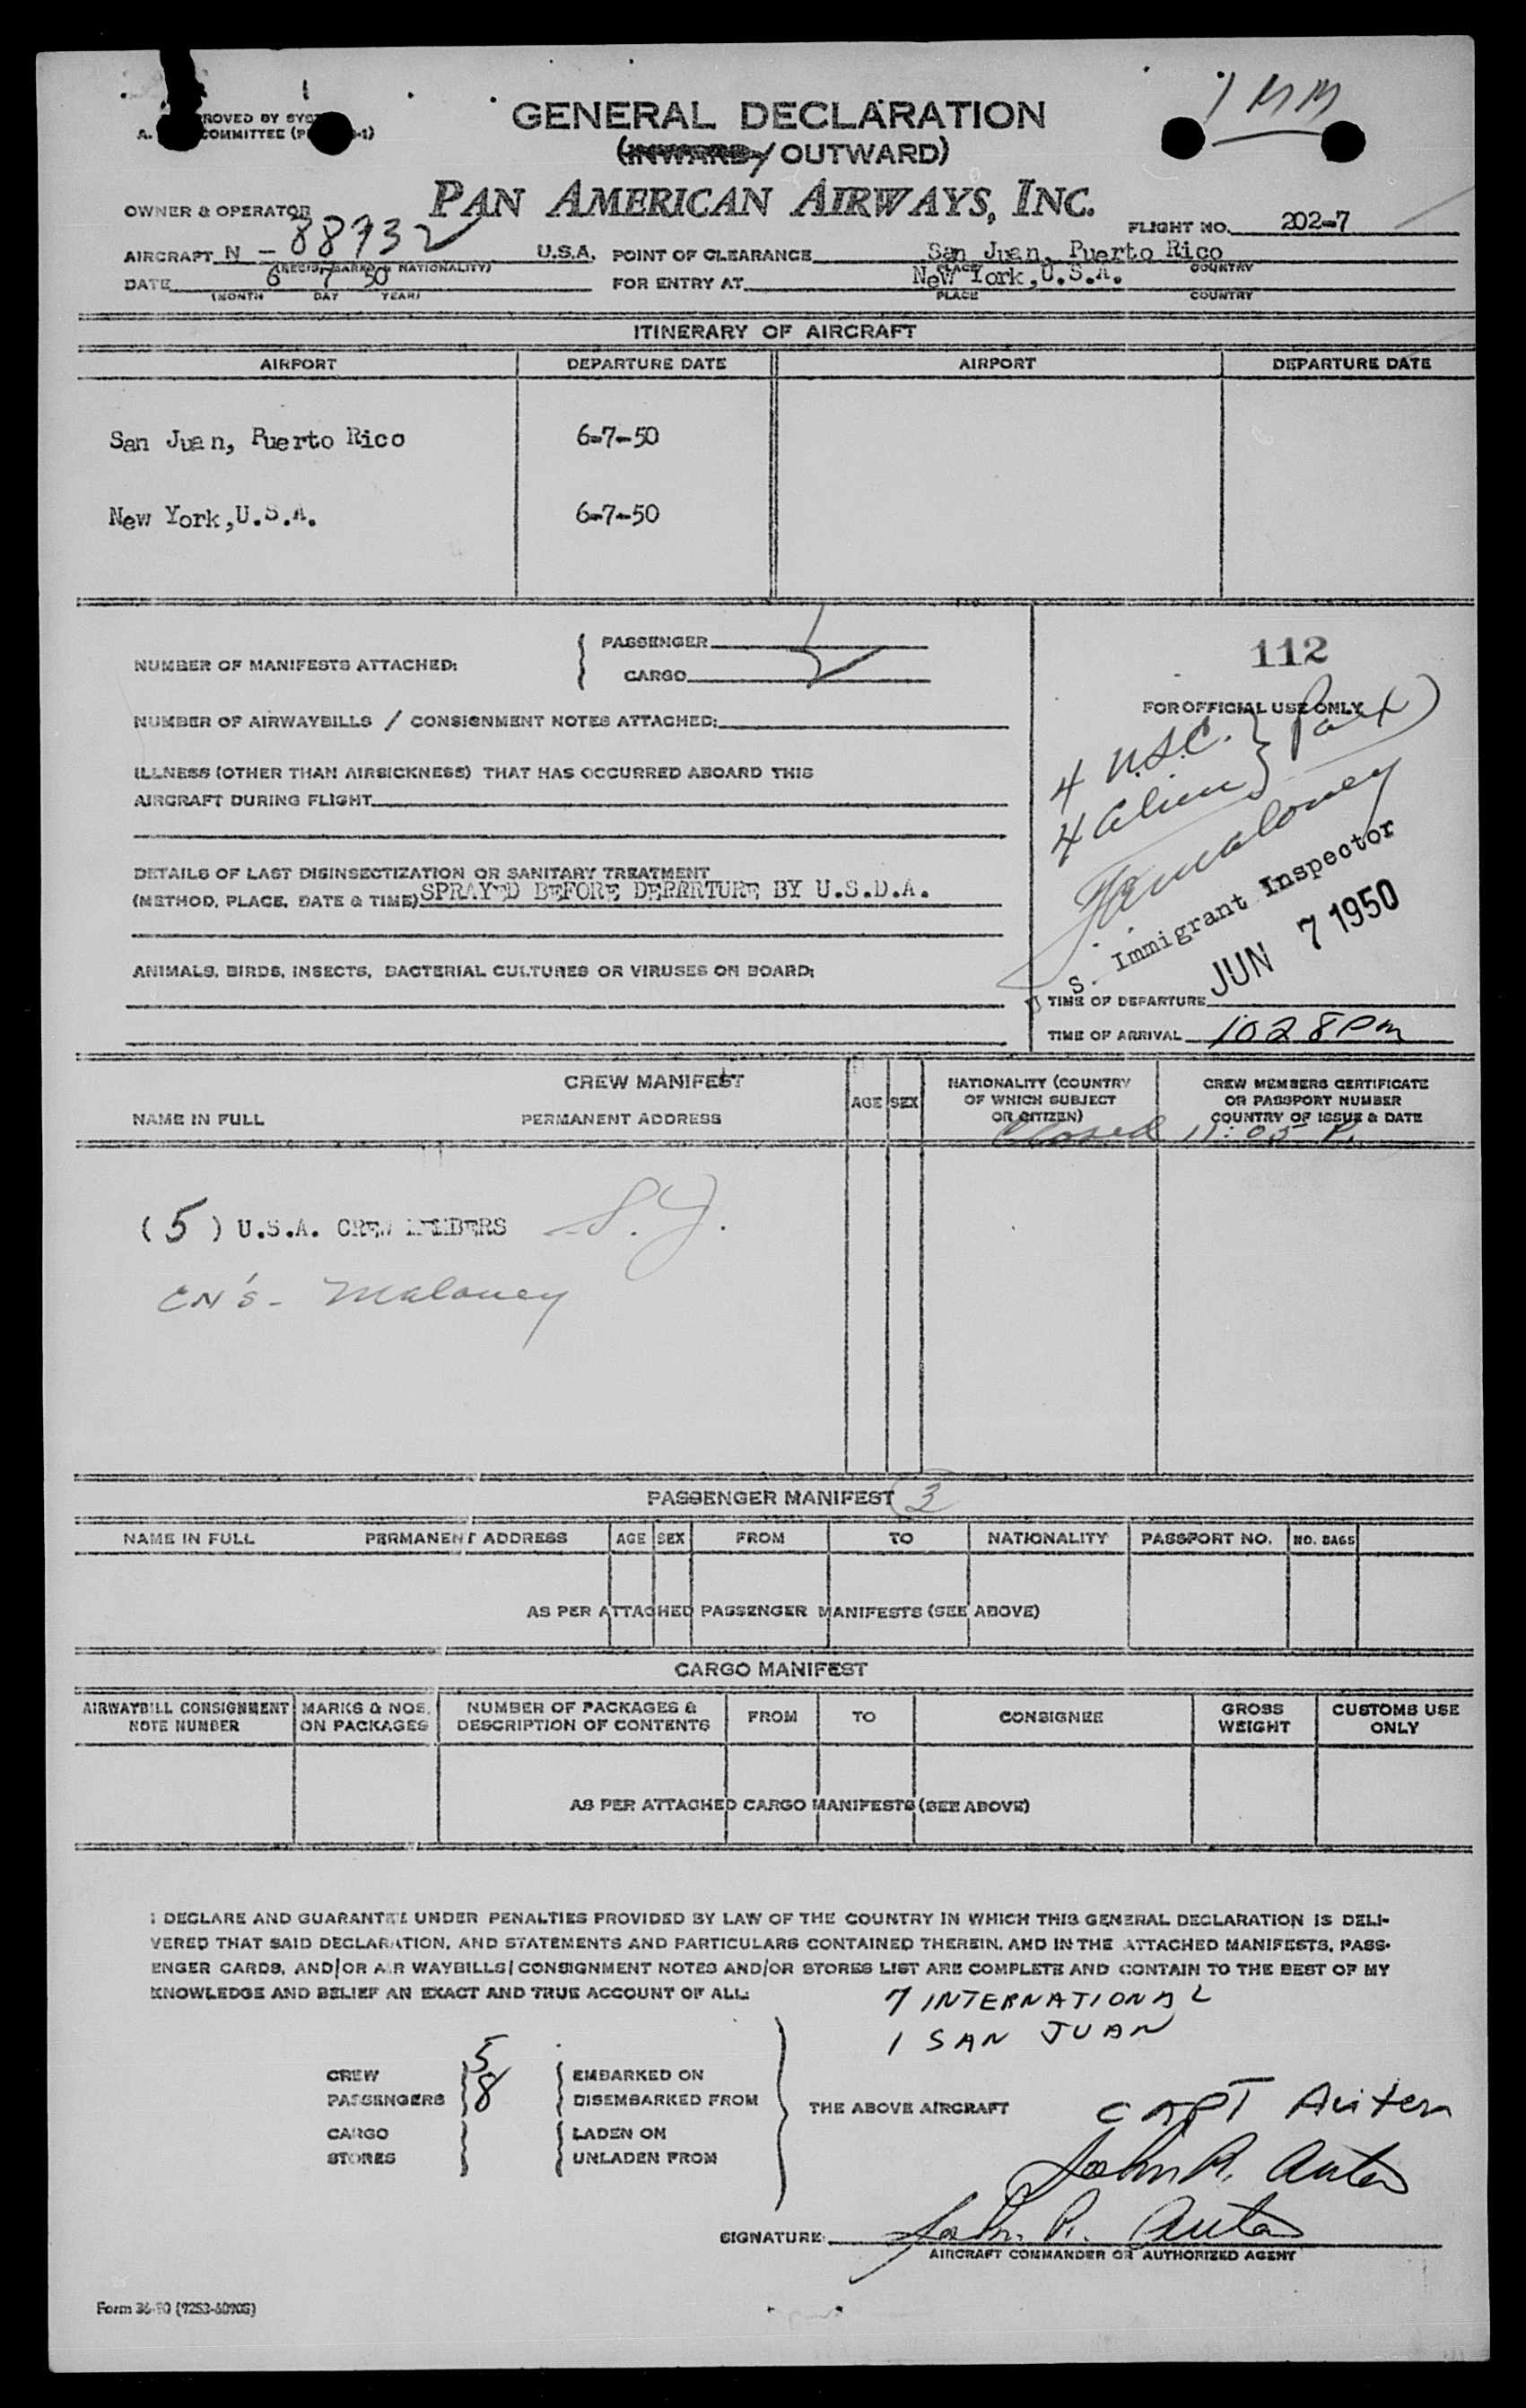 1 MM
ROVED BY SYS
A. COMMITTEE (P -1)
GENERAL DECLARATION
(INWARD / OUTWARD)
OWNER & OPERATOR PAN AMERICAN AIRWAYS, INC.
FLIGHT NO. 202-7
AIRCRAFT N - 88932 U.S.A. POINT OF CLEARANCE San Juan, Puerto Rico
(REGIS. MARKS & NATIONALITY) PLACE COUNTRY
DATE 6 7 50 FOR ENTRY AT New York, U.S.A.
(MONTH DAY YEAR) PLACE COUNTRY
ITINERARY OF AIRCRAFT
AIRPORT DEPARTURE DATE AIRPORT DEPARTURE DATE
San Juan, Puerto Rico 6-7-50
New York, U.S.A. 6-7-50
NUMBER OF MANIFESTS ATTACHED: PASSENGER
CARGO
112
FOR OFFICIAL USE ONLY
NUMBER OF AIRWAYBILLS / CONSIGNMENT NOTES ATTACHED:
4 U.S.C. } Pax
4 alien
ILLNESS (OTHER THAN AIRSICKNESS) THAT HAS OCCURRED ABOARD THIS
AIRCRAFT DURING FLIGHT
Maloney
U S. Immigrant Inspector
JUN 7 1950
DETAILS OF LAST DISINSECTIZATION OR SANITARY TREATMENT
(METHOD, PLACE, DATE & TIME) SPRAYED BEFORE DEPARTURE BY U.S.D.A.
ANIMALS, BIRDS, INSECTS, BACTERIAL CULTURES OR VIRUSES ON BOARD:
TIME OF DEPARTURE
TIME OF ARRIVAL 1028 PM
CREW MANIFEST
NAME IN FULL PERMANENT ADDRESS AGE SEX NATIONALITY (COUNTRY OF WHICH SUBJECT OR CITIZEN) CREW MEMBERS CERTIFICATE OR PASSPORT NUMBER COUNTRY OF ISSUE & DATE
Closed 11:05 P.
( 5 ) U.S.A. CREW MEMBERS
CN'S - Maloney
PASSENGER MANIFEST 3
NAME IN FULL PERMANENT ADDRESS AGE SEX FROM TO NATIONALITY PASSPORT NO. NO. BAGS
AS PER ATTACHED PASSENGER MANIFESTS (SEE ABOVE)
CARGO MANIFEST
AIRWAYBILL CONSIGNMENT NOTE NUMBER MARKS & NOS. ON PACKAGES NUMBER OF PACKAGES & DESCRIPTION OF CONTENTS FROM TO CONSIGNEE GROSS WEIGHT CUSTOMS USE ONLY
AS PER ATTACHED CARGO MANIFESTS (SEE ABOVE)
I DECLARE AND GUARANTEE UNDER PENALTIES PROVIDED BY LAW OF THE COUNTRY IN WHICH THIS GENERAL DECLARATION IS DELI-
VERED THAT SAID DECLARATION, AND STATEMENTS AND PARTICULARS CONTAINED THEREIN, AND IN THE ATTACHED MANIFESTS, PASS-
ENGER CARDS, AND/OR AIR WAYBILLS/CONSIGNMENT NOTES AND/OR STORES LIST ARE COMPLETE AND CONTAIN TO THE BEST OF MY
KNOWLEDGE AND BELIEF AN EXACT AND TRUE ACCOUNT OF ALL:
7 INTERNATIONAL
1 SAN JUAN
CREW 5 EMBARKED ON
PASSENGERS 8 DISEMBARKED FROM
THE ABOVE AIRCRAFT
CARGO LADEN ON
STORES UNLADEN FROM
CAPT Auten
John R. Auten
SIGNATURE: John R. Auten
AIRCRAFT COMMANDER OR AUTHORIZED AGENT
Form 36-50